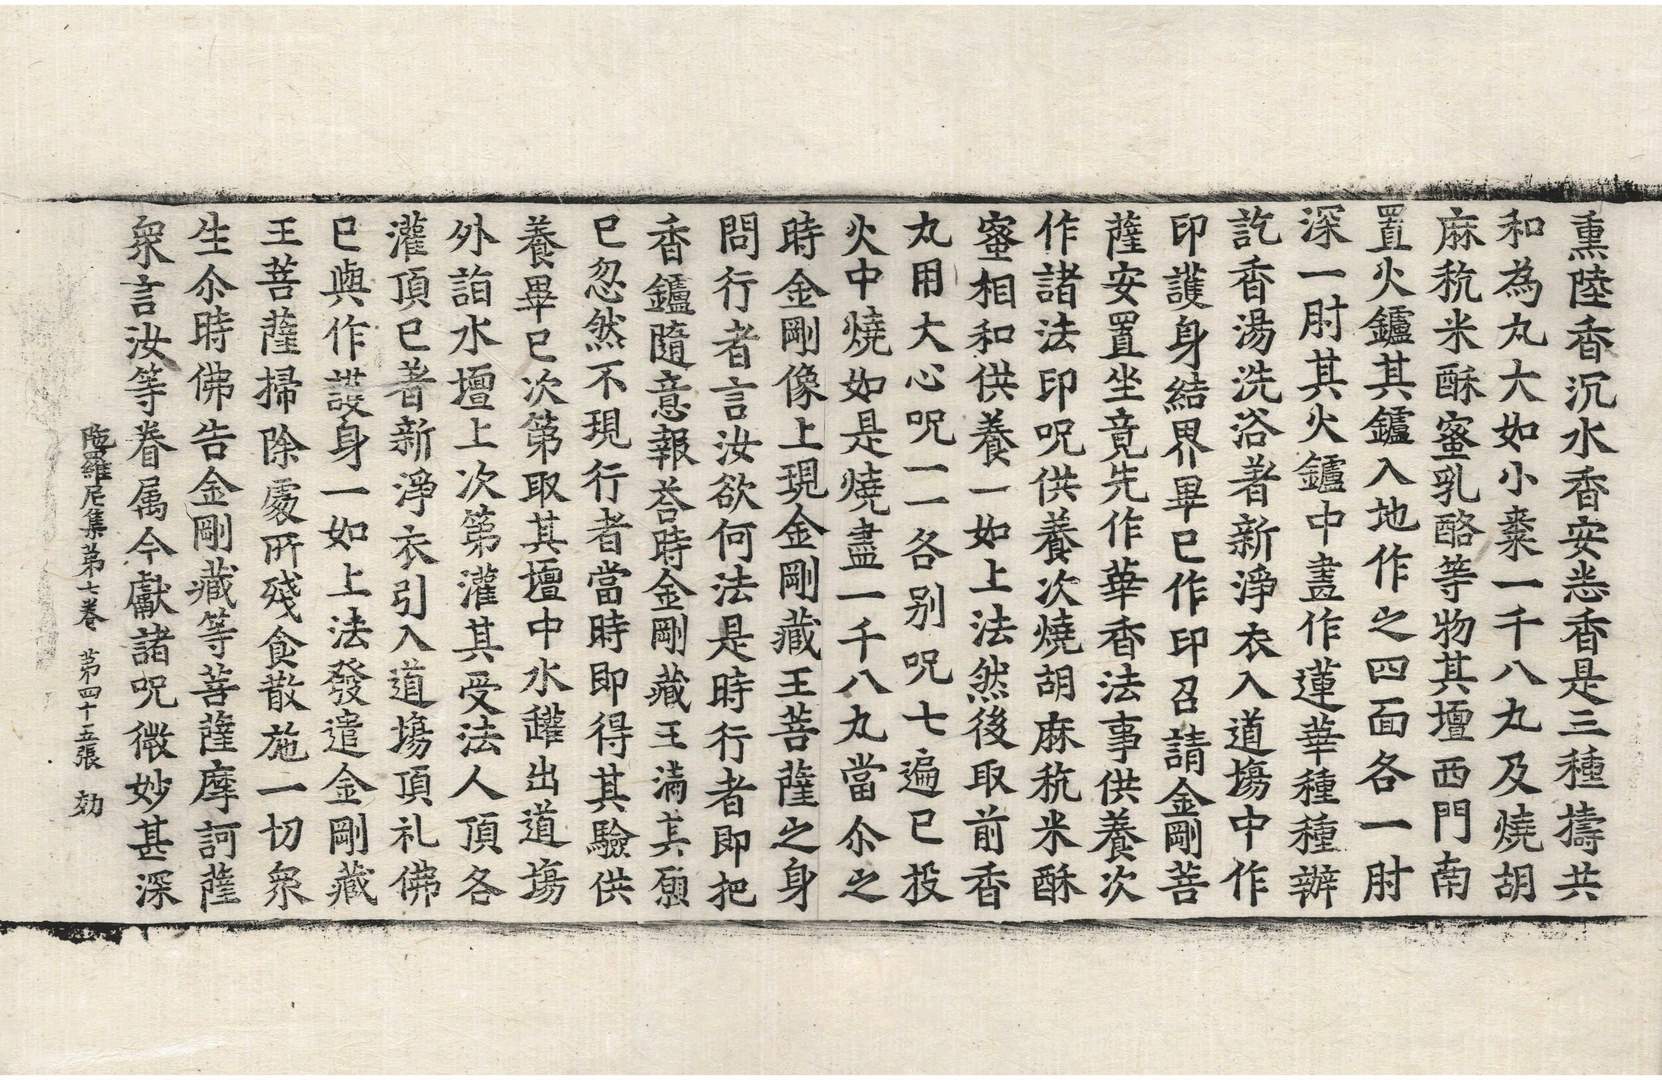 熏陸香沉水香安悉香是三種擣共
和為丸大如小棗一千八丸及燒胡
麻秔米酥蜜乳酪等物其壇西門南
置火鑪其鑪入地作之四面各一肘
深一肘其火鑪中盡作蓮華種種辦
訖香湯洗浴著新淨衣入道塲中作
印護身結界畢已作印召請金剛菩
薩安置坐竟先作華香法事供養次
作諸法印呪供養次燒胡麻秔米酥
蜜相和供養一如上法然後取前香
丸用大心呪一一各別呪七遍已投
火中燒如是燒盡一千八丸當尒之
時金剛像上現金剛藏王菩薩之身
問行者言汝欲何法是時行者即把
香鑪隨意報荅時金剛藏王滿其願
已忽然不現行者當時即得其驗供
養畢已次第取其壇中水罐出道塲
外詣水壇上次第灌其受法人頂各
灌頂已著新淨衣引入道塲頂礼佛
已與作護身一如上法發遣金剛藏
王菩薩掃除處所殘食散施一切衆
生尒時佛告金剛藏等菩薩摩訶薩
衆言汝等眷属今獻諸呪微妙甚深
陁羅尼集第七卷 第四十五張 効